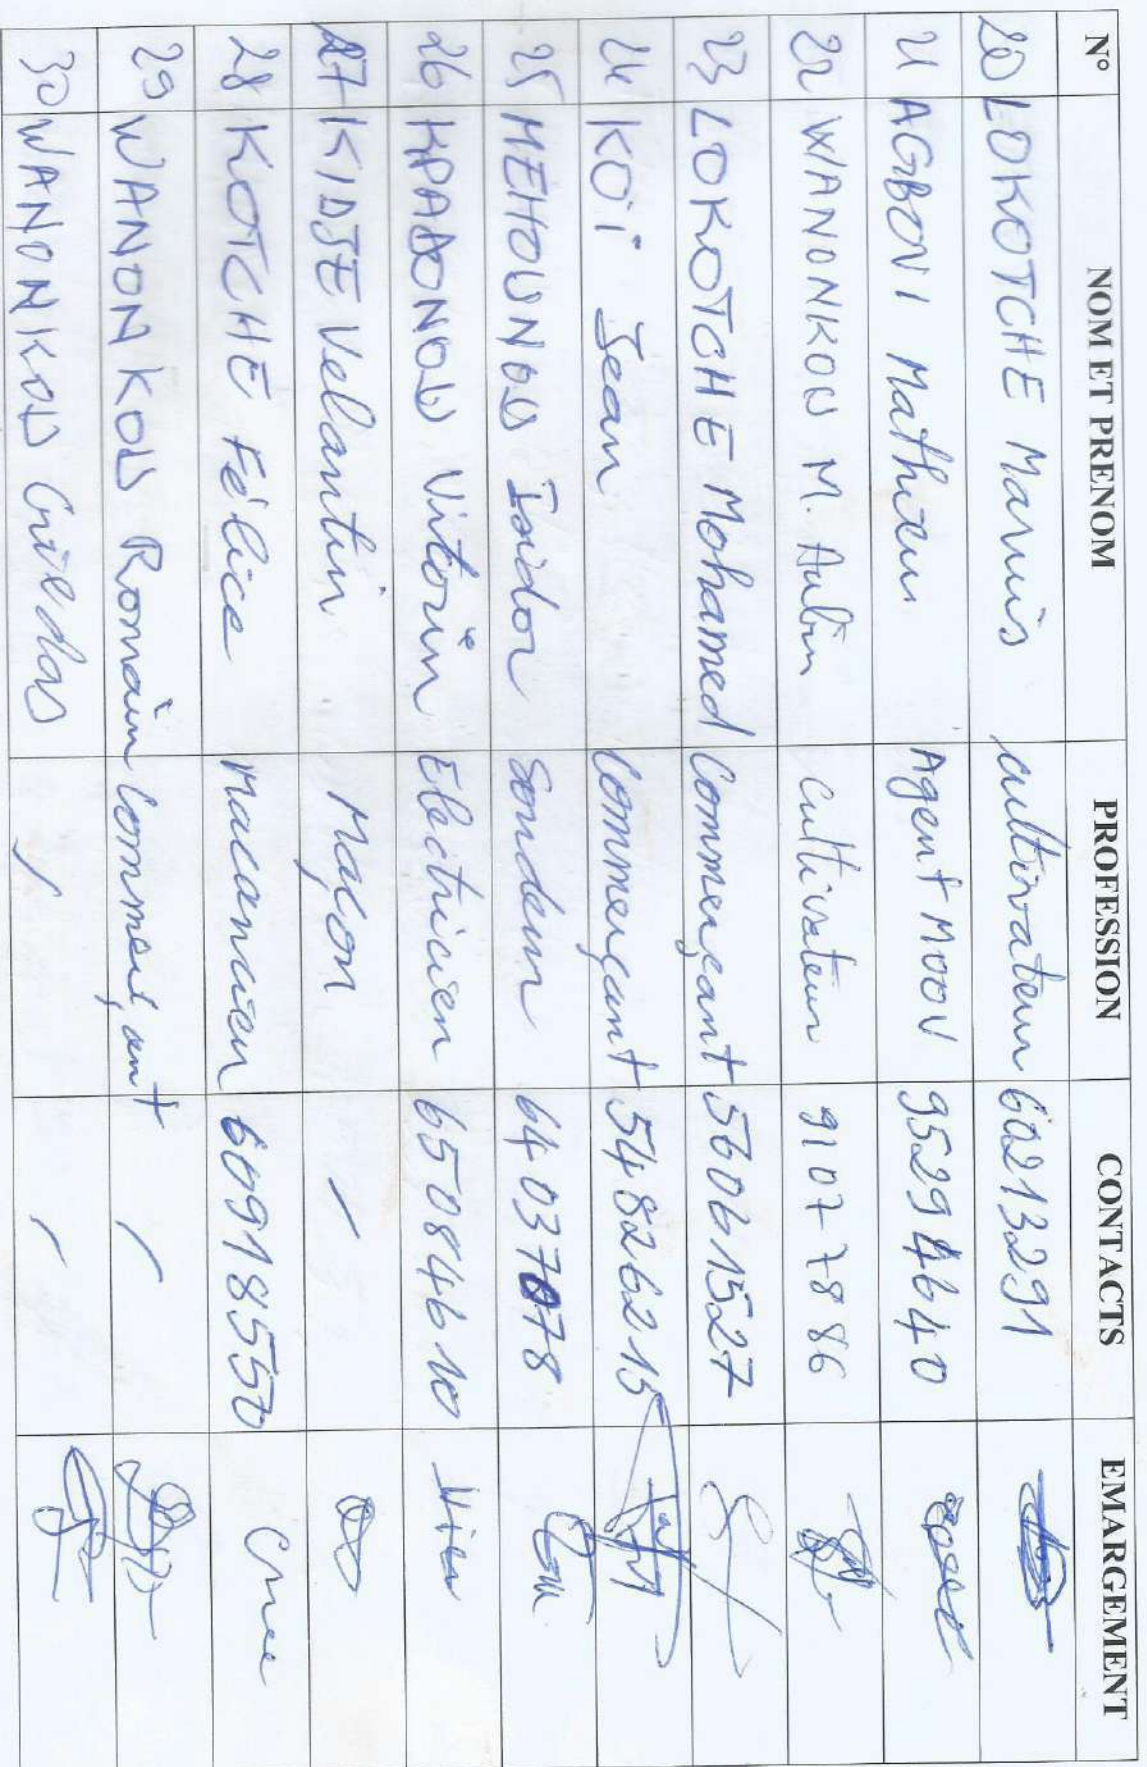 N° NOM ET PRENOM PROFESSION CONTACTS EMARGEMENT
20 LOKOTCHE Marius cultivateur 60213291
21 AGBOVI Mathieu Agent MOOV 95294640
22 WANONKOU M. Aubin Cultivateur 91077886
23 LOKOTCHE Mohamed Commerçant 56061527
24 KOÏ Jean Commerçant 54826215
25 MEHOUNOU Isidor Soudeur 64037078
26 KPADONOU Vitorin Electricien 65084610
27 KIDJE Velantin Maçon /
28 KOTCHE Félice Macanicien 60918550
29 WANONKOU Romain Commerçant /
30 WANONKOU / /